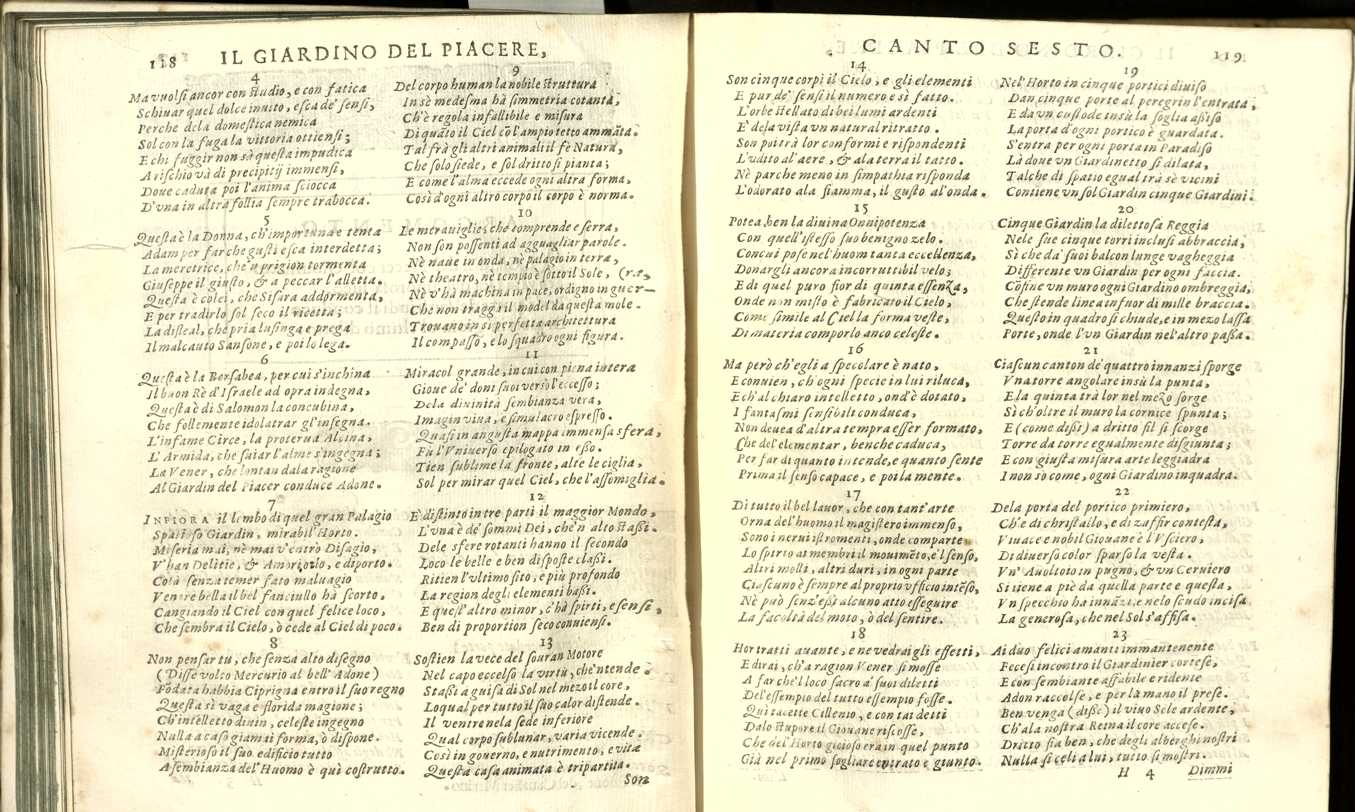 118 IL GIARDINO DEL PIACERE,
4
Ma vuolsi ancor con studio, e con fatica
Schiuar quel dolce inuito, esca de' sensi,
Perche dela domestica nemica
Sol con la fuga la vittoria ottiensi;
E chi fuggir non sà questa impudica
A rischio và di precipitij immensi,
Doue caduta poi l'anima sciocca
D'vna in altra follia sempre trabocca.
5
Questa è la Donna, ch'importuna e tenta
Adam per far che gusti esca interdetta;
La meretrice, che'n prigion tormenta
Giuseppe il giusto, & a peccar l'alletta.
Questa è colei, che Sisara addormenta,
E per tradirlo sol seco il ricetta;
La disleal, che pria lusinga e prega
Il malcauto Sansone, e poi lo lega.
6
Questa è la Bersabea, per cui s'inchina
Il buon Rè d'Israele ad opra indegna,
Questa è di Salomon la concubina,
Che follemente idolatrar gl'insegna.
L'infame Circe, la proterua Alcina,
L'Armida, che suiar l'alme s'ingegna;
La Vener, che lontan dala ragione
Al Giardin del Piacer conduce Adone.
7
INFIORA il lembo di quel gran Palagio
Spatioso Giardin, mirabil'Horto.
Miseria mai, nè mai v'entrò Disagio,
V'han Delitie, & Amori otio, e diporto.
Colà senza temer fato maluagio
Venere bella il bel fanciullo hà scorto,
Cangiando il Ciel con quel felice loco,
Che sembra il Cielo, ò cede al Ciel di poco.
8
Non pensar tu, che senza alto disegno
(Disse volto Mercurio al bell'Adone)
Fondata habbia Ciprigna entro il suo regno
Questa sì vaga e florida magione;
Ch'intelletto diuin, celeste ingegno
Nulla a caso giamai forma, ò dispone.
Misterioso il suo edificio tutto
A sembianza del'Huomo è quì costrutto.
9
Del corpo human la nobile struttura
In sè medesma hà simmetria cotanta,
Ch'è regola infallibile e misura
Di quãto il Ciel cõ l'ampio tetto ammãta.
Tal frà gli altri animali il fè Natura,
Che solo siede, e sol dritto si pianta;
E come l'alma eccede ogni altra forma,
Così d'ogni altro corpo il corpo è norma.
10
Le merauiglie, che comprende e serra,
Non son possenti ad agguagliar parole.
Nè naue in onda, nè palagio in terra,
Nè theatro, nè tempio è sotto il Sole, (ra,
Nè v'hà machina in pace, ordigno in guer-
Che non tragga il model da questa mole.
Trouano in sì perfetta architettura
Il compasso, e lo squadro ogni figura.
11
Miracol grande, in cui con piena intera
Gioue de' doni suoi versò l'eccesso;
Dela diuinità sembianza vera,
Imagin viua, e simulacro espresso.
Quasi in angusta mappa immensa sfera,
Fù l'Vniuerso epilogato in esso.
Tien sublime la fronte, alte le ciglia,
Sol per mirar quel Ciel, che l'assomiglia.
12
E' distinto in tre parti il maggior Mondo,
L'vna è de' sommi Dei, che'n alto stassi.
Dele sfere rotanti hanno il secondo
Loco le belle e ben disposte classi.
Ritien l'vltimo sito, e più profondo
La region degli elementi bassi.
E quest'altro minor, c'hà spirti, e sensi,
Ben di proportion seco conuiensi.
13
Sostien la vece del souran Motore
Nel capo eccelso la virtù, che'ntende.
Stassi a guisa di Sol nel mezo il core,
Loqual per tutto il suo calor distende.
Il ventre nela sede inferiore
Qual corpo sublunar, varia vicende.
Così in gouerno, e nutrimento, e vita
Questa casa animata è tripartita.
Son
CANTO SESTO. 119
14
Son cinque corpi il Cielo, e gli elementi
E pur de' sensi il numero e sì fatto.
L'orbe stellato di bei lumi ardenti
E' dela vista vn natural ritratto.
Son poi trà lor conformi e rispondenti
L'vdito al'aere, & ala terra il tatto.
Nè parche meno in simpathia risponda
L'odorato ala fiamma, il gusto al'onda.
15
Potea ben la diuina Onnipotenza
Con quell'istesso suo benigno zelo.
Con cui pose nel'huom tanta eccellenza,
Donargli ancora incorruttibil velo;
E di quel puro fior di quinta essenza,
Onde non misto è fabricato il Cielo,
Come simile al Ciel la forma veste,
Di materia comporlo anco celeste.
16
Ma però ch'egli a specolare è nato,
E conuien, ch'ogni specie in lui riluca,
E ch'al chiaro intelletto, ond'è dotato,
I fantasmi sensibili conduca,
Non deuea d'altra tempra esser formato,
Che del'elementar, benche caduca,
Per far di quanto intende, e quanto sente
Prima il senso capace, e poi la mente.
17
Di tutto il bel lauor, che con tant'arte
Orna del'huomo il magistero immenso,
Sono i nerui istromenti, onde comparte
Lo spirto ai membri il mouimẽto, e'l senso,
Altri molli, altri duri, in ogni parte
Ciascuno è sempre al proprio vfficio intẽso,
Nè può senz'essi alcuno atto esseguire
La facoltà del moto, ò del sentire.
18
Hor tratti auante, e ne vedrai gli effetti,
E dirai, ch'a ragion Vener si mosse
A far che'l loco sacro a' suoi diletti
Del'essempio del tutto essempio fosse.
Quì tacette Cillenio, e con tai detti
Dalo stupore il Giouane riscosse,
Che del'Horto gioioso era in quel punto
Già nel primo sogliare entrato e giunto.
19
Nel'Horto in cinque portici diuiso
Dan cinque porte al peregrin l'entrata,
E da vn custode insù la soglia assiso
La porta d'ogni portico è guardata.
S'entra per ogni porta in Paradiso
Là doue vn Giardinetto si dilata,
Talche di spatio egual trà sè vicini
Contiene vn sol Giardin cinque Giardini.
20
Cinque Giardin la dilettosa Reggia
Nele sue cinque torri inclusi abbraccia,
Sì che da' suoi balcon lunge vagheggia
Differente vn Giardin per ogni faccia.
Cõfin' vn muro ogni Giardino ombreggia,
Che stende linea in fuor di mille braccia.
Questo in quadro si chiude, e in mezo lassa
Porte, onde l'vn Giardin nel'altro passa.
21
Ciascun canton de' quattro innanzi sporge
Vna torre angolare insù la punta,
E la quinta trà lor nel mezo sorge
Sì ch'oltre il muro la cornice spunta;
E (come dissi) a dritto fil si scorge
Torre da torre egualmente disgiunta;
E con giusta misura arte leggiadra
I non so come, ogni Giardino inquadra.
22
Dela porta del portico primiero,
Ch'è di christallo, e di zaffir contesta,
Viuace e nobil Giouane è l'Vsciero,
Di diuerso color sparso la vesta.
Vn' Auoltoio in pugno, & vn Ceruiero
Si tiene a piè da quella parte e questa,
Vn specchio ha innãzi, e nelo scudo incisa
La generosa, che nel Sol s'affisa.
23
Ai duo felici amanti immantenente
Fecesi incontro il Giardinier cortese,
E con sembiante affabile e ridente
Adon raccolse, e per la mano il prese.
Ben venga (disse) il viuo Sole ardente,
Ch'ala nostra Reina il core accese.
Dritto fia ben, che degli alberghi nostri
Nulla si celi a lui, tutto si mostri.
H 4 Dimmi